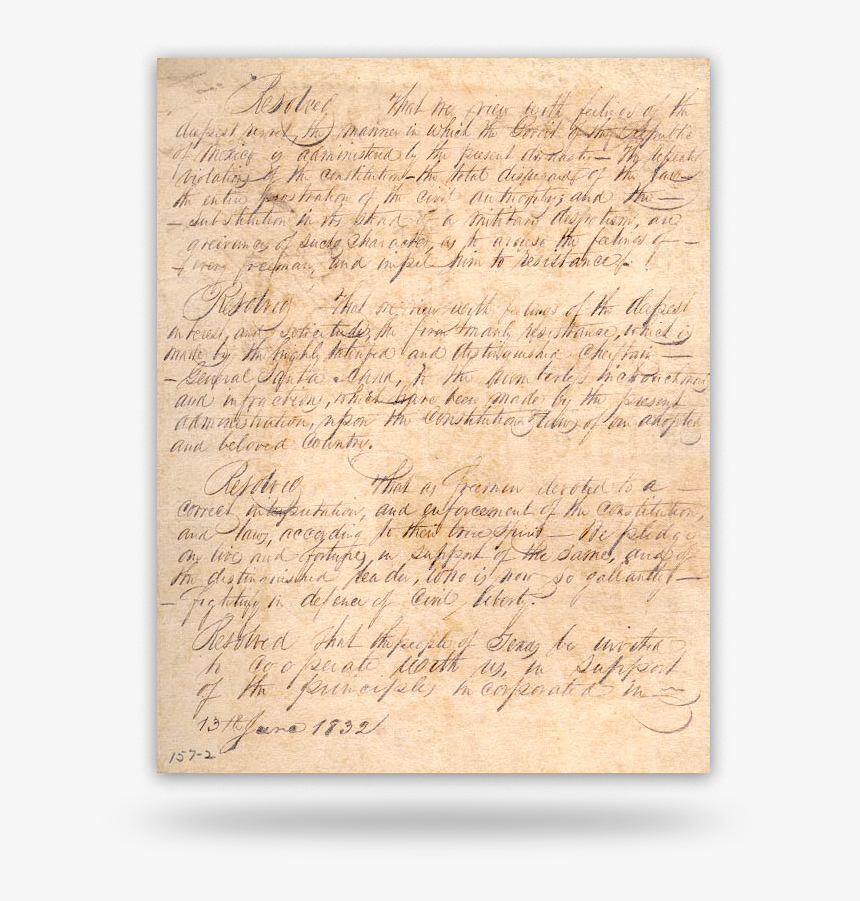 Resolved That we view with feelings of the
deepest regret, the manner in which the Govmt of the republic
of Mexico is administered by the present dynasty — The repeated
violations of the constitution — the total disregard of the laws —
the entire prostration of the civil authority; and the —
— substitution in its stead of a military despotism, are
grievances of such character, as to arouse the feelings of —
— every freeman, and impel him to resistance —
Resolved That we view with feelings of the deepest
interest, and solicitude, the firm and manly resistance, which is
made by the highly talented and distinguished Cheiftain —
— General Santa Anna, to the numberless incroachments
and infractions, which have been made by the present
administration, upon the Constitution & laws of our adopted
and beloved Country.
Resolved That as freemen devoted to a —
correct interpretation, and enforcement of the Constitution,
and laws, according to their true spirit — We pledge
our lives and fortunes in support of the same, and of
the distinguished leader, who is now so gallantly —
— fighting in defence of Civil liberty.
Resolved That the people of Texas be invited
to cooperate with us, in support
of the principles incorporated in —
13th June 1832
157-2